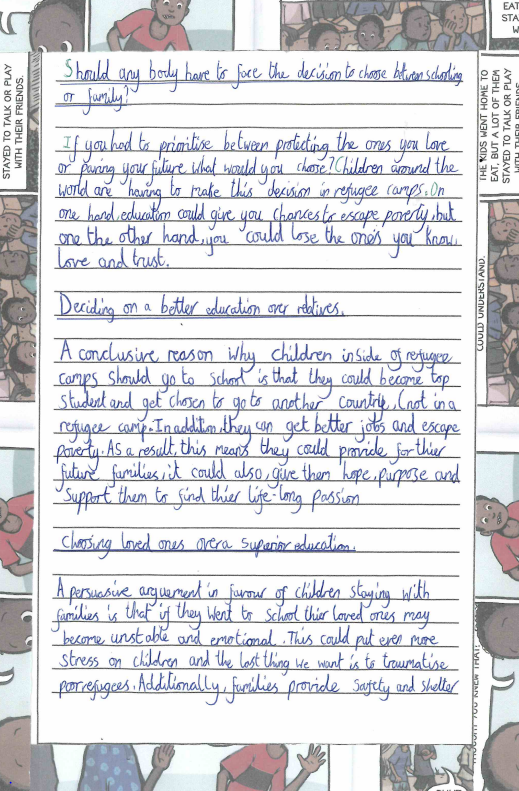 EAT
STA
W
STAYED TO TALK OR PLAY
WITH THEIR FRIENDS.
THE KIDS WENT HOME TO
EAT, BUT A LOT OF THEM
STAYED TO TALK OR PLAY
WITH THEIR FRIENDS
COULD UNDERSTAND.
Should any body have to face the decision to choose between schooling
or family?
If you had to prioritise between protecting the ones you love
or paving your future what would you choose? Children around the
world are having to make this decision in refugee camps. On
one hand, education could give you chances to escape poverty, but
one the other hand, you could lose the one's you know,
love and trust.
Deciding on a better education over relatives.
A conclusive reason why children inside of refugee
camps should go to school is that they could become top
student and get chosen to go to another country, (not in a
refugee camp. In addition, they can get better jobs and escape
poverty. As a result, this means they could provide for thier
future families, it could also, give them hope, purpose and
support them to find thier life-long passion
Choosing loved ones over a superior education.
A persuasive arguement in favour of children staying with
families is that if they went to school thier loved ones may
become unstable and emotional. This could put even more
stress on children and the last thing we want is to traumatise
poor refugees. Additionally, families provide safety and shelter
THOUGHT YOU KNEW THAT!